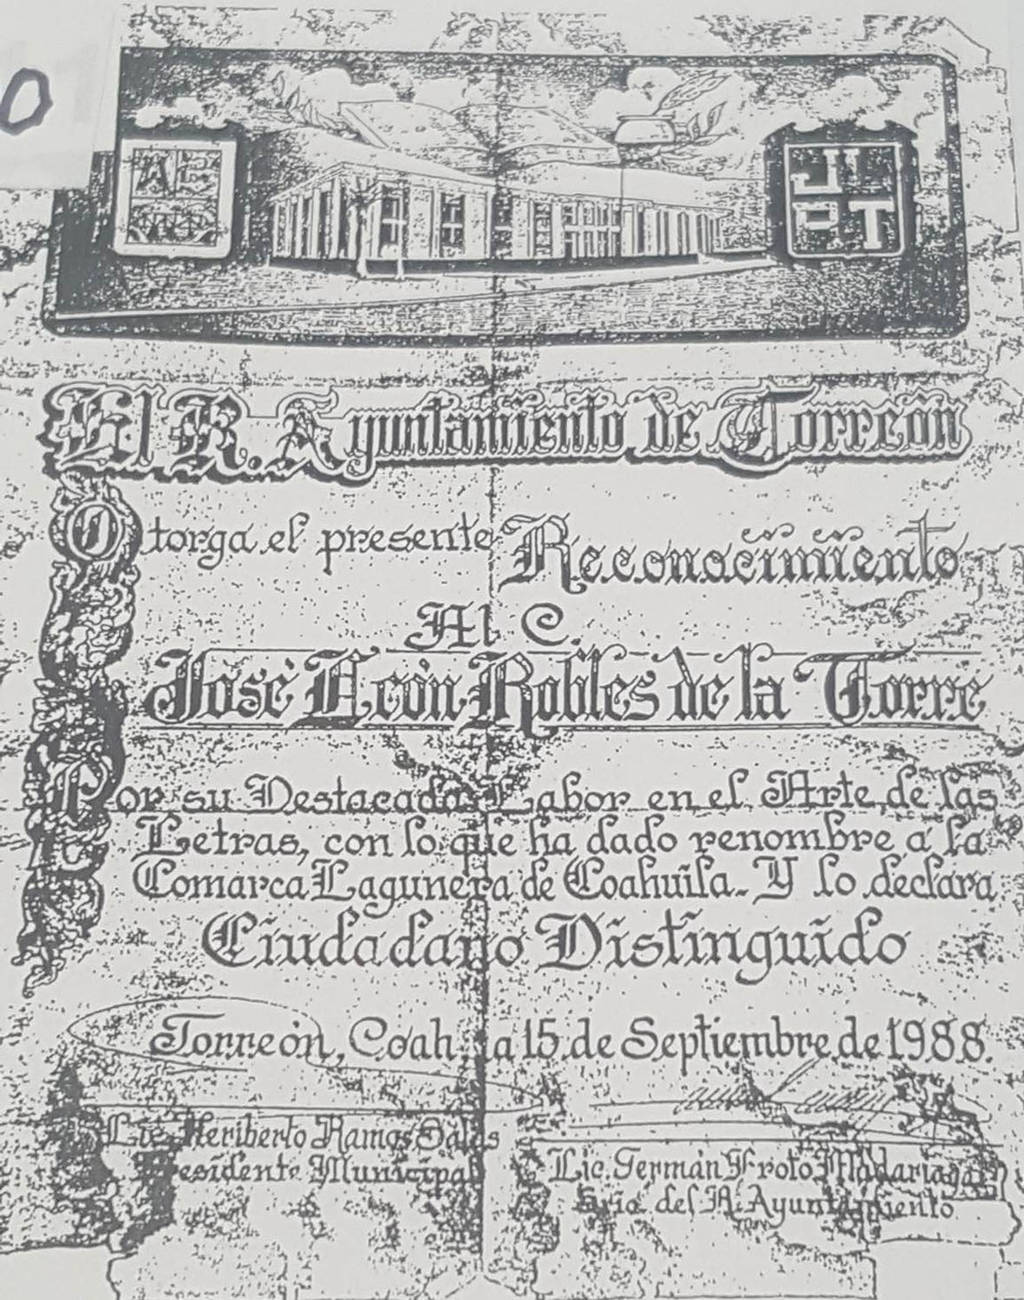 O
JL
PT
El R. Ayuntamiento de Torreón
Otorga el presente Reconocimiento
Al C.
José León Robles de la Torre
Por su Destacada Labor en el Arte de las
Letras, con lo que ha dado renombre a la
Comarca Lagunera de Coahuila. Y lo declara
Ciudadano Distinguido
Torreón, Coah. a 15 de Septiembre de 1988.
Lic. Heriberto Ramos Salas
Presidente Municipal
Lic. Germán Froto Madariaga
Srio. del R. Ayuntamiento